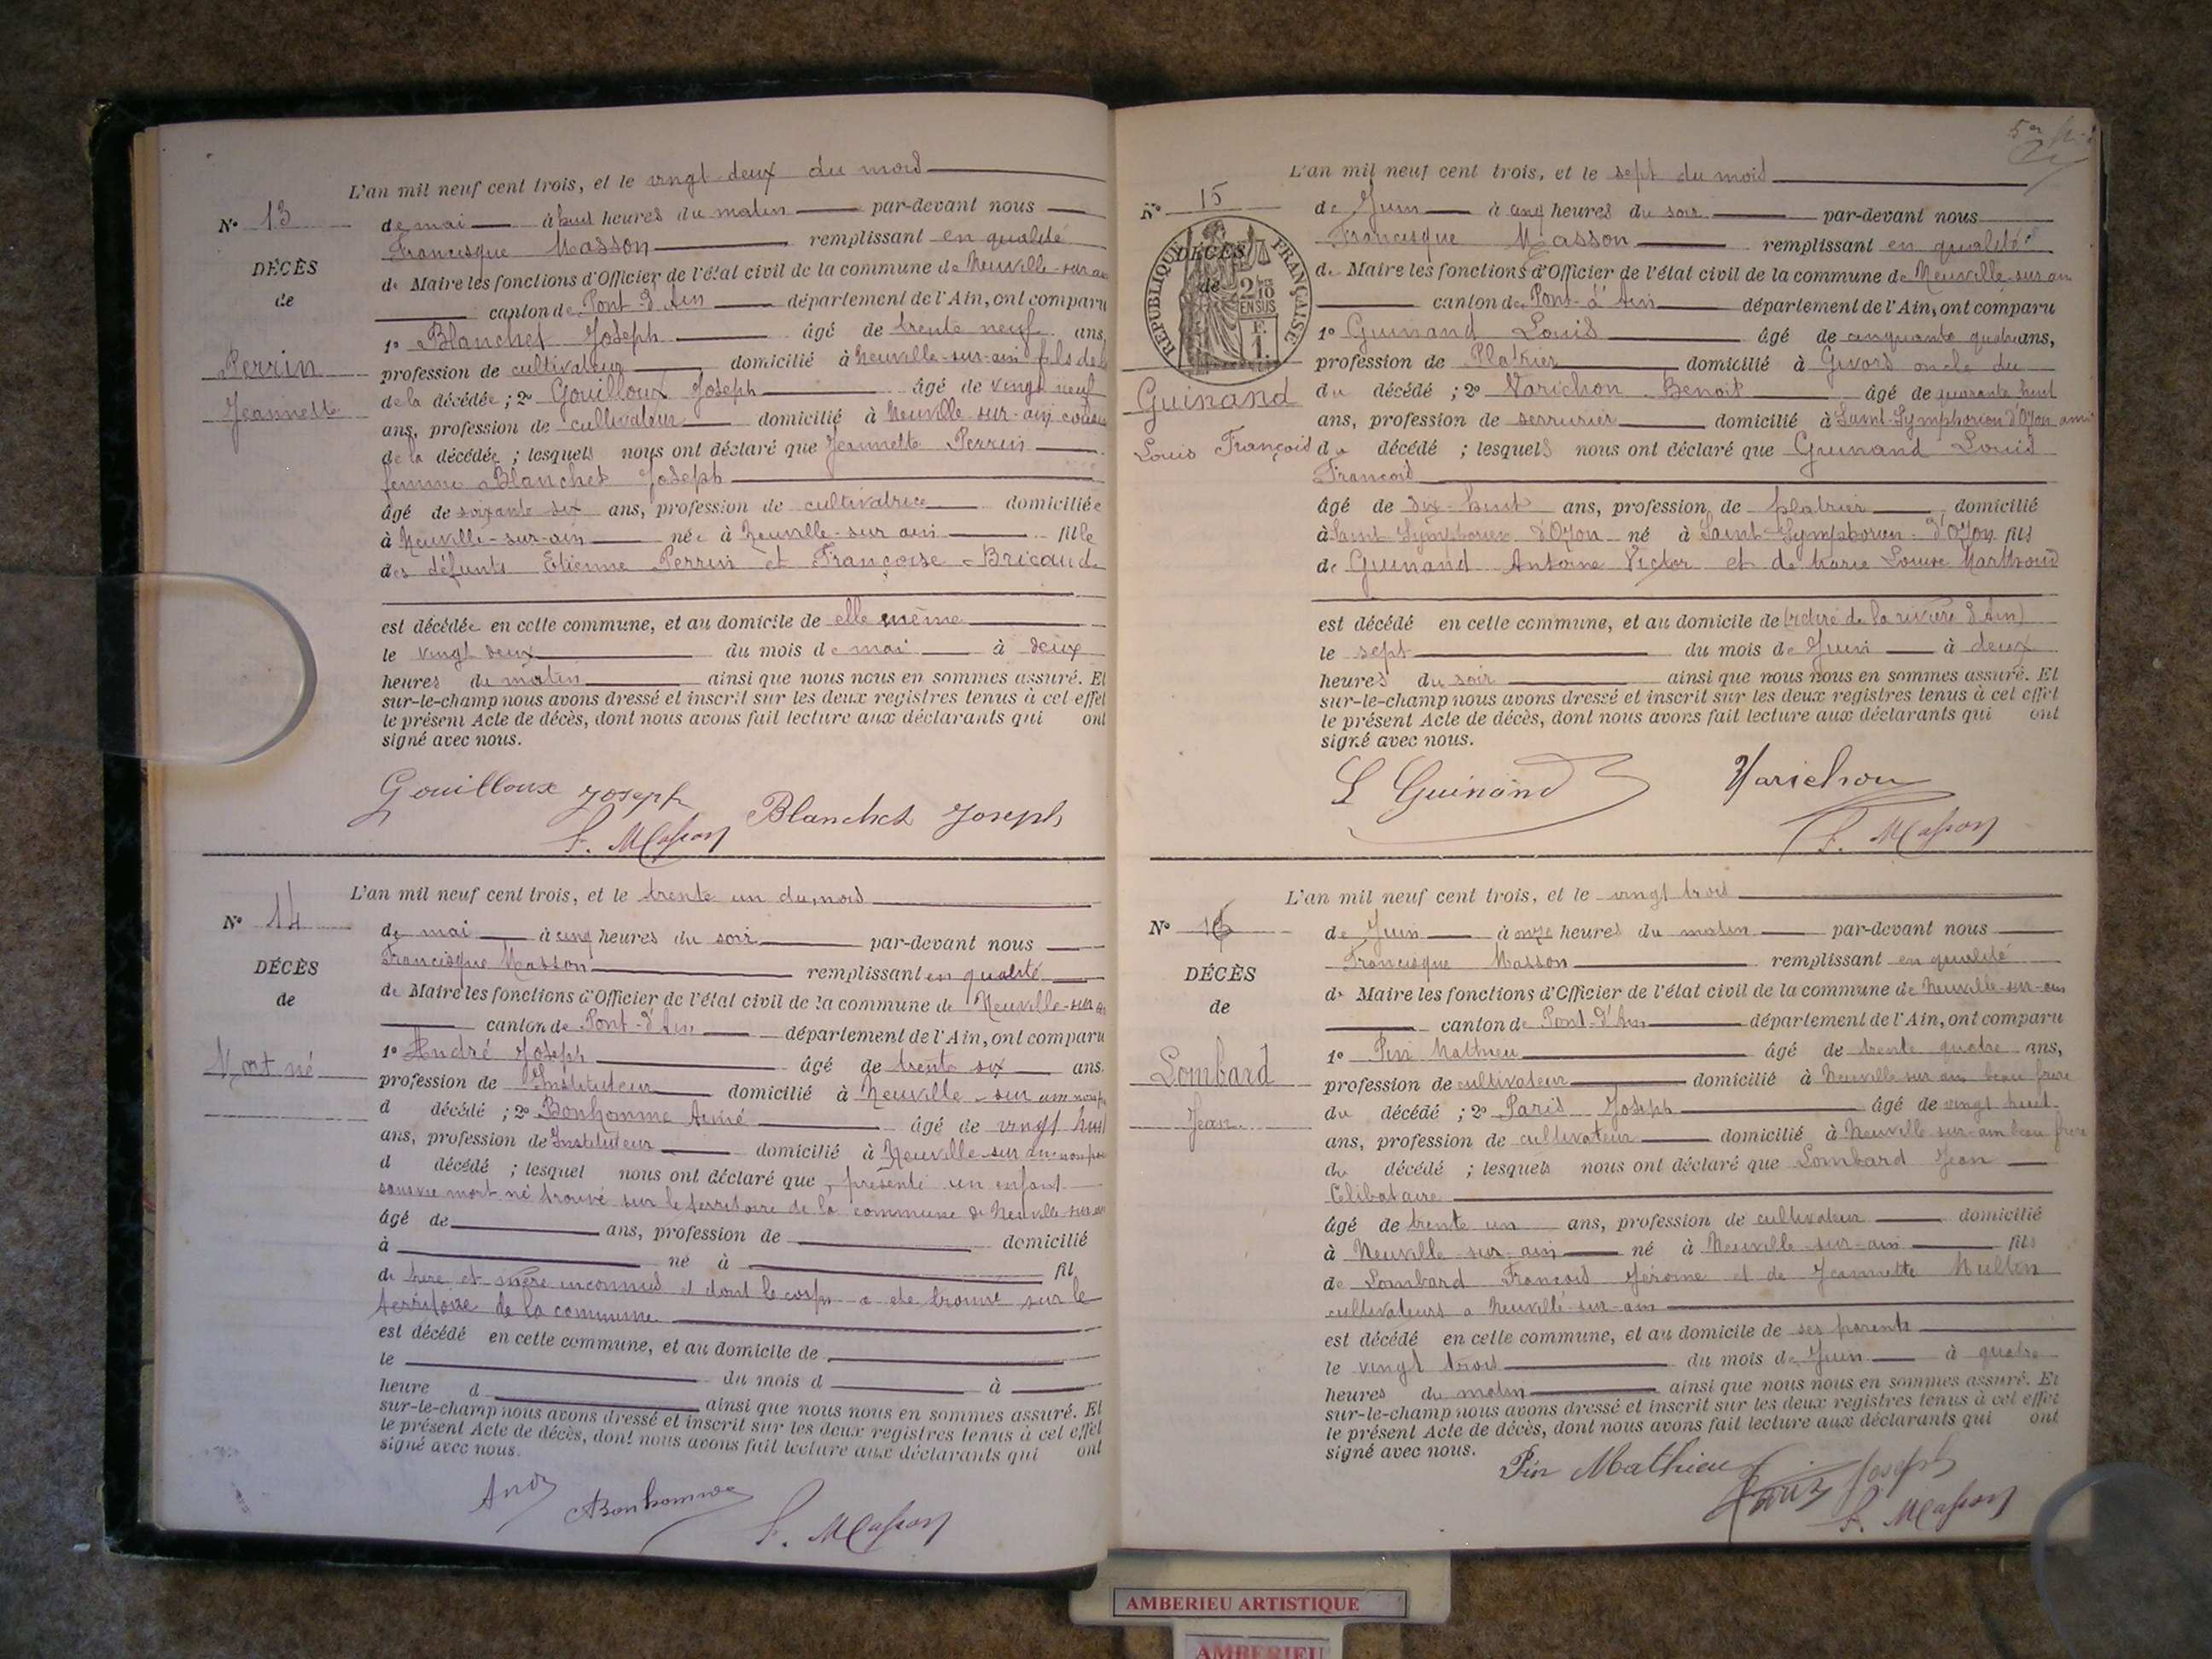 L'an mil neuf cent trois, et le vingt deux du mois
N° 13
de mai à huit heures du matin par-devant nous
Francisque Masson remplissant en qualité
DÉCÈS
de Maire les fonctions d'Officier de l'état civil de la commune de Neuville-sur-ain
de
canton de Pont d'Ain département de l'Ain, ont comparu
1° Blanchet Joseph âgé de trente neuf ans,
Perrin
profession de cultivateur domicilié à Neuville-sur-ain fils de
Jeannette
de la décédée ; 2° Gouilloux Joseph âgé de vingt neuf
ans, profession de cultivateur domicilié à Neuville-sur-ain cousin
de la décédée ; lesquels nous ont déclaré que Jeannette Perrin
femme Blanchet Joseph
âgé de soixante six ans, profession de cultivatrice domiciliée
à Neuville-sur-ain née à Neuville-sur ain fille
des défunts Etienne Perrin et Françoise Bricaud
est décédée en cette commune, et au domicile de elle même
le vingt deux du mois de mai à deux
heures du matin ainsi que nous nous en sommes assuré. Et
sur-le-champ nous avons dressé et inscrit sur les deux registres tenus à cet effet
le présent Acte de décès, dont nous avons fait lecture aux déclarants qui ont
signé avec nous.
Gouilloux Joseph
Blanchet Joseph
F. Masson
L'an mil neuf cent trois, et le trente un du mois
N° 14
de mai à cinq heures du soir par-devant nous
Francisque Masson remplissant en qualité
DÉCÈS
de Maire les fonctions d'Officier de l'état civil de la commune de Neuville-sur-ain
de
canton de Pont-d'Ain département de l'Ain, ont comparu
1° André Joseph âgé de trente six ans.
Mort né
profession de Instituteur domicilié à Neuville-sur ain
d décédé ; 2° Bonhomme Aimé âgé de vingt huit
ans, profession de Instituteur domicilié à Neuville-sur
d décédé ; lesquel nous ont déclaré que présenté un enfant
sans vie mort né trouvé sur le territoire de la commune de Neuville-sur-ain
âgé de ans, profession de domicilié
à né à fil
de père et mère inconnus et dont le corps a été trouvé sur le
territoire de la commune
est décédé en cette commune, et au domicile de
le du mois d à
heure d ainsi que nous nous en sommes assuré. Et
sur-le-champ nous avons dressé et inscrit sur les deux registres tenus à cet effet
le présent Acte de décès, dont nous avons fait lecture aux déclarants qui ont
signé avec nous.
Bonhomme
F. Masson
L'an mil neuf cent trois, et le sept du mois
N° 15
de Juin à cinq heures du soir par-devant nous
Francisque Masson remplissant en qualité
RÉPUBLIQUE FRANÇAISE
DÉCÈS
de Maire les fonctions d'Officier de l'état civil de la commune de Neuville-sur ain
de
2/10 EN SUS
canton de Pont-d'Ain département de l'Ain, ont comparu
1° Guinand Louis âgé de cinquante quatre ans,
profession de Platrier domicilié à Givors oncle du
Guinand
du décédé ; 2° Varichon Benoit âgé de quarante huit
ans, profession de serrurier domicilié à Saint-Symphorien d'Ozon ami
Louis François
du décédé ; lesquels nous ont déclaré que Guinand Louis
François
âgé de dix-huit ans, profession de platrier domicilié
à Saint Symphorien d'Ozon né à Saint-Symphorien-d'Ozon fils
de Guinand Antoine Victor et de Marie Louise
est décédé en cette commune, et au domicile de (retiré de la rivière d'Ain)
le sept du mois de Juin à deux
heures du soir ainsi que nous nous en sommes assuré. Et
sur-le-champ nous avons dressé et inscrit sur les deux registres tenus à cet effet
le présent Acte de décès, dont nous avons fait lecture aux déclarants qui ont
signé avec nous.
L Guinand Varichon
F. Masson
L'an mil neuf cent trois, et le vingt trois
N° 16
de Juin à onze heures du matin par-devant nous
Francisque Masson remplissant en qualité
DÉCÈS
de Maire les fonctions d'Officier de l'état civil de la commune de Neuville-sur-ain
de
canton de Pont-d'Ain département de l'Ain, ont comparu
1° Pin Mathieu âgé de trente quatre ans,
Lombard
profession de cultivateur domicilié à Neuville sur ain beau frère
Jean
du décédé ; 2° Paris Joseph âgé de vingt huit
ans, profession de cultivateur domicilié à Neuville-sur-ain beau frère
du décédé ; lesquels nous ont déclaré que Lombard Jean
Célibataire
âgé de trente un ans, profession de cultivateur domicilié
à Neuville-sur-ain né à Neuville-sur-ain fils
de Lombard François Jérome et de Jeannette
cultivateurs a Neuville-sur-ain
est décédé en cette commune, et au domicile de ses parents
le vingt trois du mois de Juin à quatre
heures du matin ainsi que nous nous en sommes assuré. Et
sur-le-champ nous avons dressé et inscrit sur les deux registres tenus à cet effet
le présent Acte de décès, dont nous avons fait lecture aux déclarants qui ont
signé avec nous.
Pin Mathieu
Paris Joseph
F. Masson
AMBERIEU ARTISTIQUE
AMBERIEU